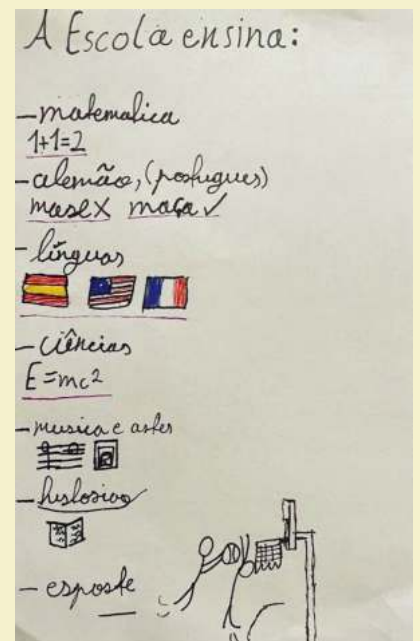 A Escola ensina:
- matematica
1+1=2
- alemão, (portugues)
masex maça ✓
- línguas
- ciências
E=mc²
- musica e artes
- historia
- esporte